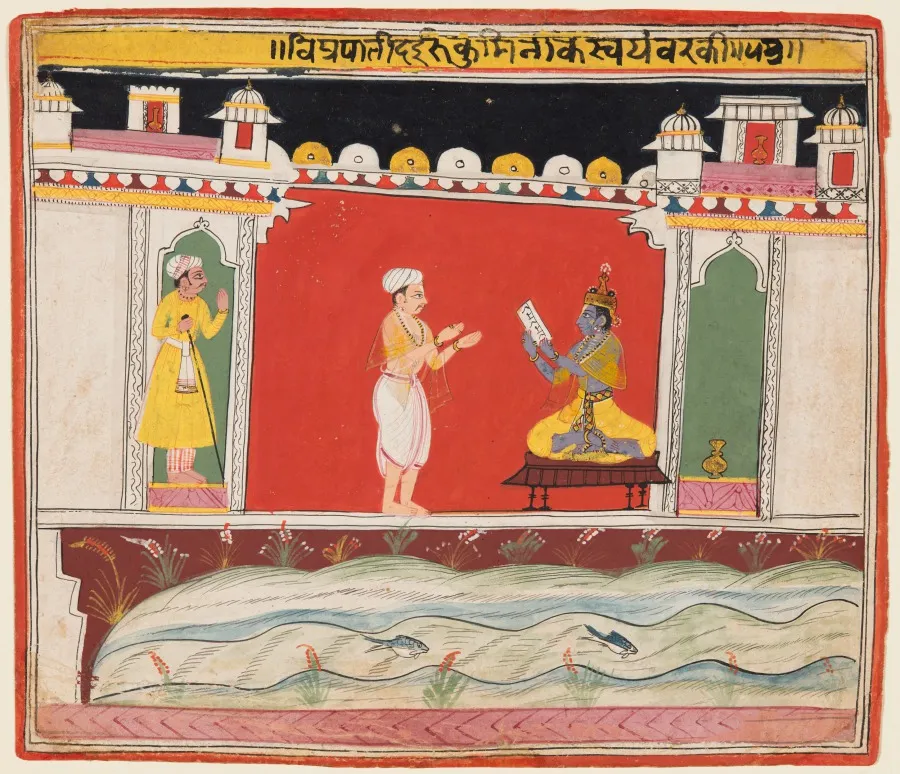 ॥विप्रपातीदईरूकुमिनीकस्वयंवरकी